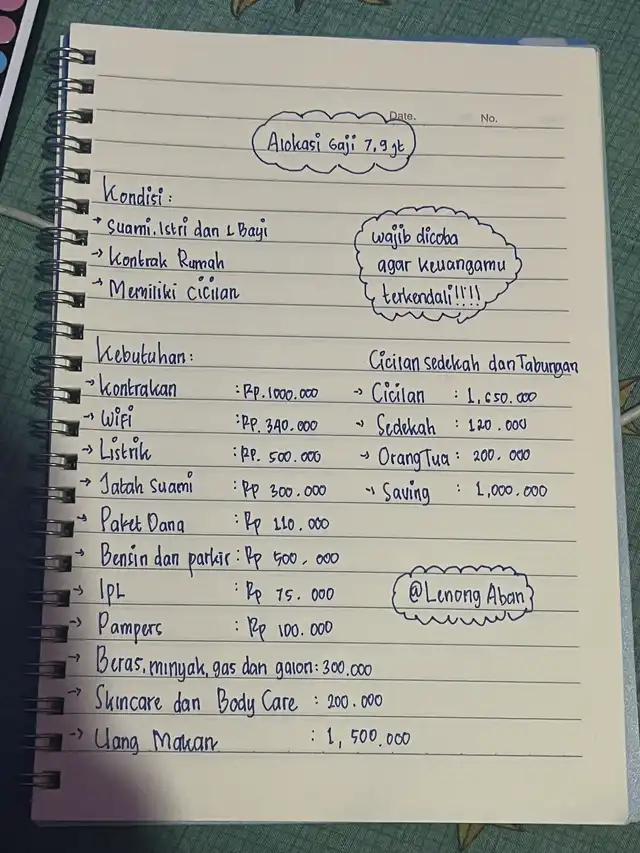 Date.
No.
Alokasi Gaji 7,9 jt
Kondisi :
→ Suami, Istri dan 1 Bayi
→ Kontrak Rumah
→ Memiliki Cicilan
wajib dicoba
agar keuangamu
terkendali!!!!
Kebutuhan :
→ Kontrakan : Rp. 1000.000
→ Wifi : Rp. 340.000
→ Listrik : Rp. 500.000
→ Jatah Suami : Rp 300.000
→ Paket Dana : Rp 110.000
→ Bensin dan parkir : Rp 500.000
→ IPL : Rp 75.000
→ Pampers : Rp 100.000
→ Beras, minyak, gas dan galon : 300.000
→ Skincare dan Body Care : 200.000
→ Uang Makan : 1,500.000
Cicilan sedekah dan Tabungan
→ Cicilan : 1,650.000
→ Sedekah : 120.000
→ Orang Tua : 200.000
→ Saving : 1,000.000
@Lenong Aban